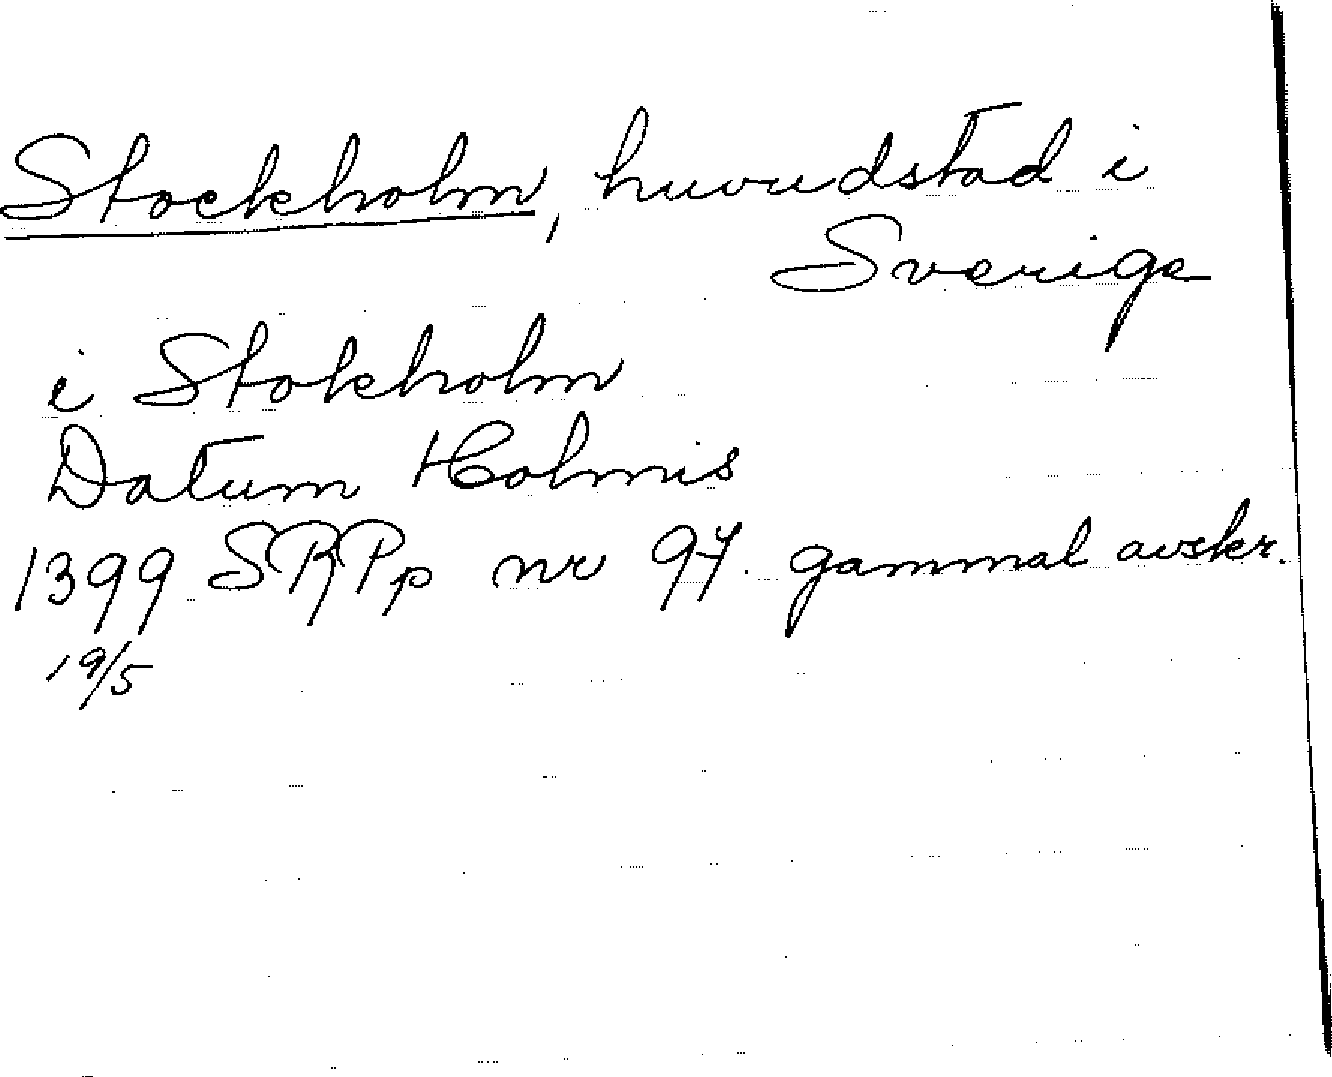 Stockholm, huvudstad i
Sverige
i Stokholm
Datum Holmis
1399 SRPp nr 97. gammal avskr.
19/5